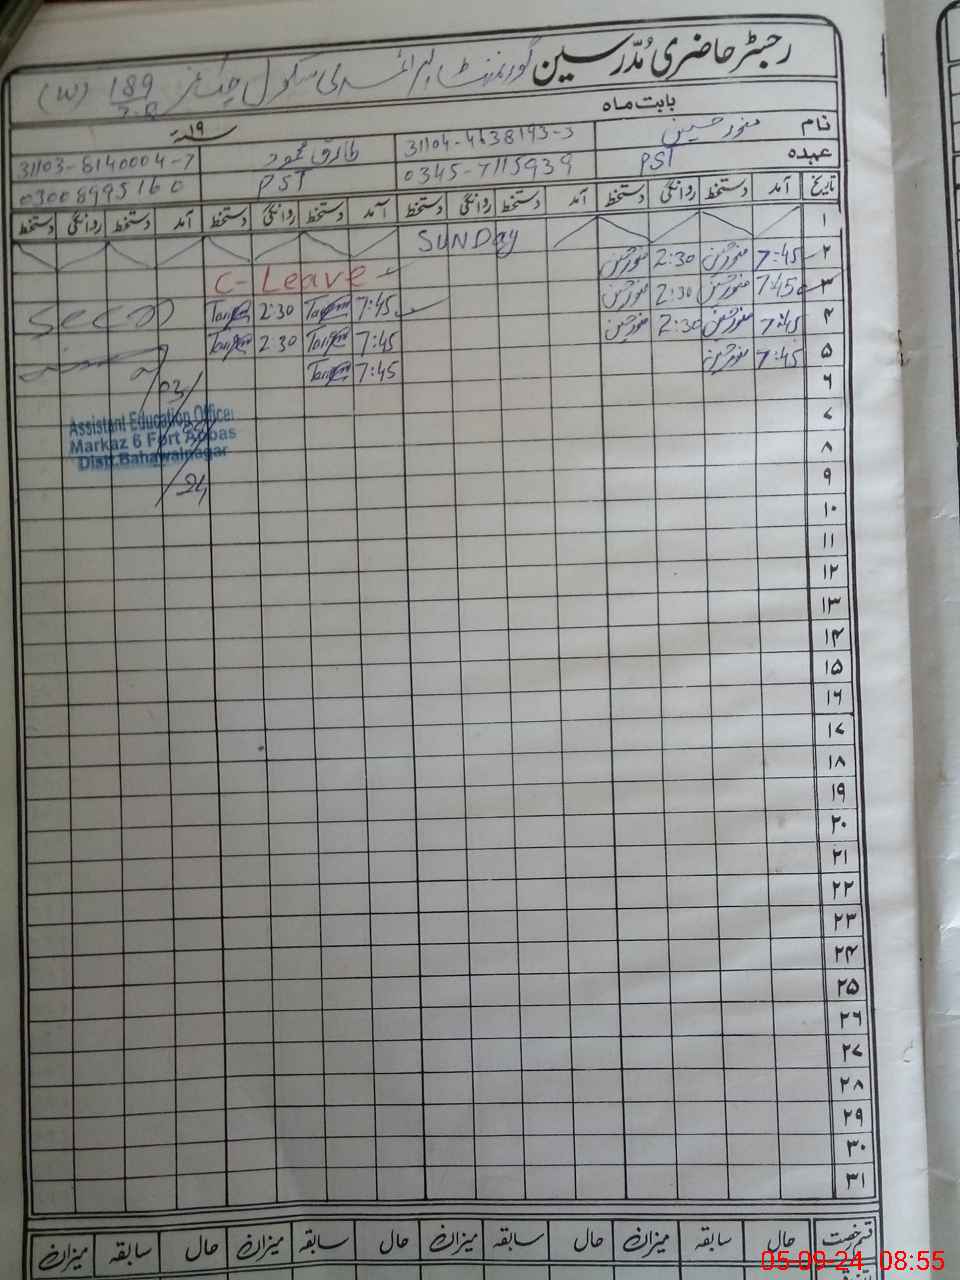 رجسٹر حاضری مُدّرسین گورنمنٹ پرائمری سکول چک نمبر 189/7.R (W)
بابت ماہ
سنہ ۱۹ء
نام منور حسین 31104-4638193-3 طارق محمود 31103-8140004-7
عہدہ PST 0345-7115939 PST 03008995160
تاریخ آمد دستخط روانگی دستخط آمد دستخط روانگی دستخط آمد دستخط روانگی دستخط آمد دستخط روانگی دستخط
۱ SUNDay
۲ 7:45 منور حسین 2:30 منور حسین C-Leave
۳ 7:45 منور حسین 2:30 منور حسین 7:45 Tariq 2:30 Tariq Seen
۴ 7:45 منور حسین 2:30 منور حسین 7:45 Tariq 2:30 Tariq
۵ 7:45 منور حسین 7:45 Tariq
۶ 03/
۷ Assistant Education Officer
۸ Markaz 6 Fort Abbas
Distt.Bahawalnagar
۹ /24
۱۰
۱۱
۱۲
۱۳
۱۴
۱۵
۱۶
۱۷
۱۸
۱۹
۲۰
۲۱
۲۲
۲۳
۲۴
۲۵
۲۶
۲۷
۲۸
۲۹
۳۰
۳۱
قسم رخصت حال سابقہ میزان حال سابقہ میزان حال سابقہ میزان حال سابقہ میزان
05-09-24 08:55